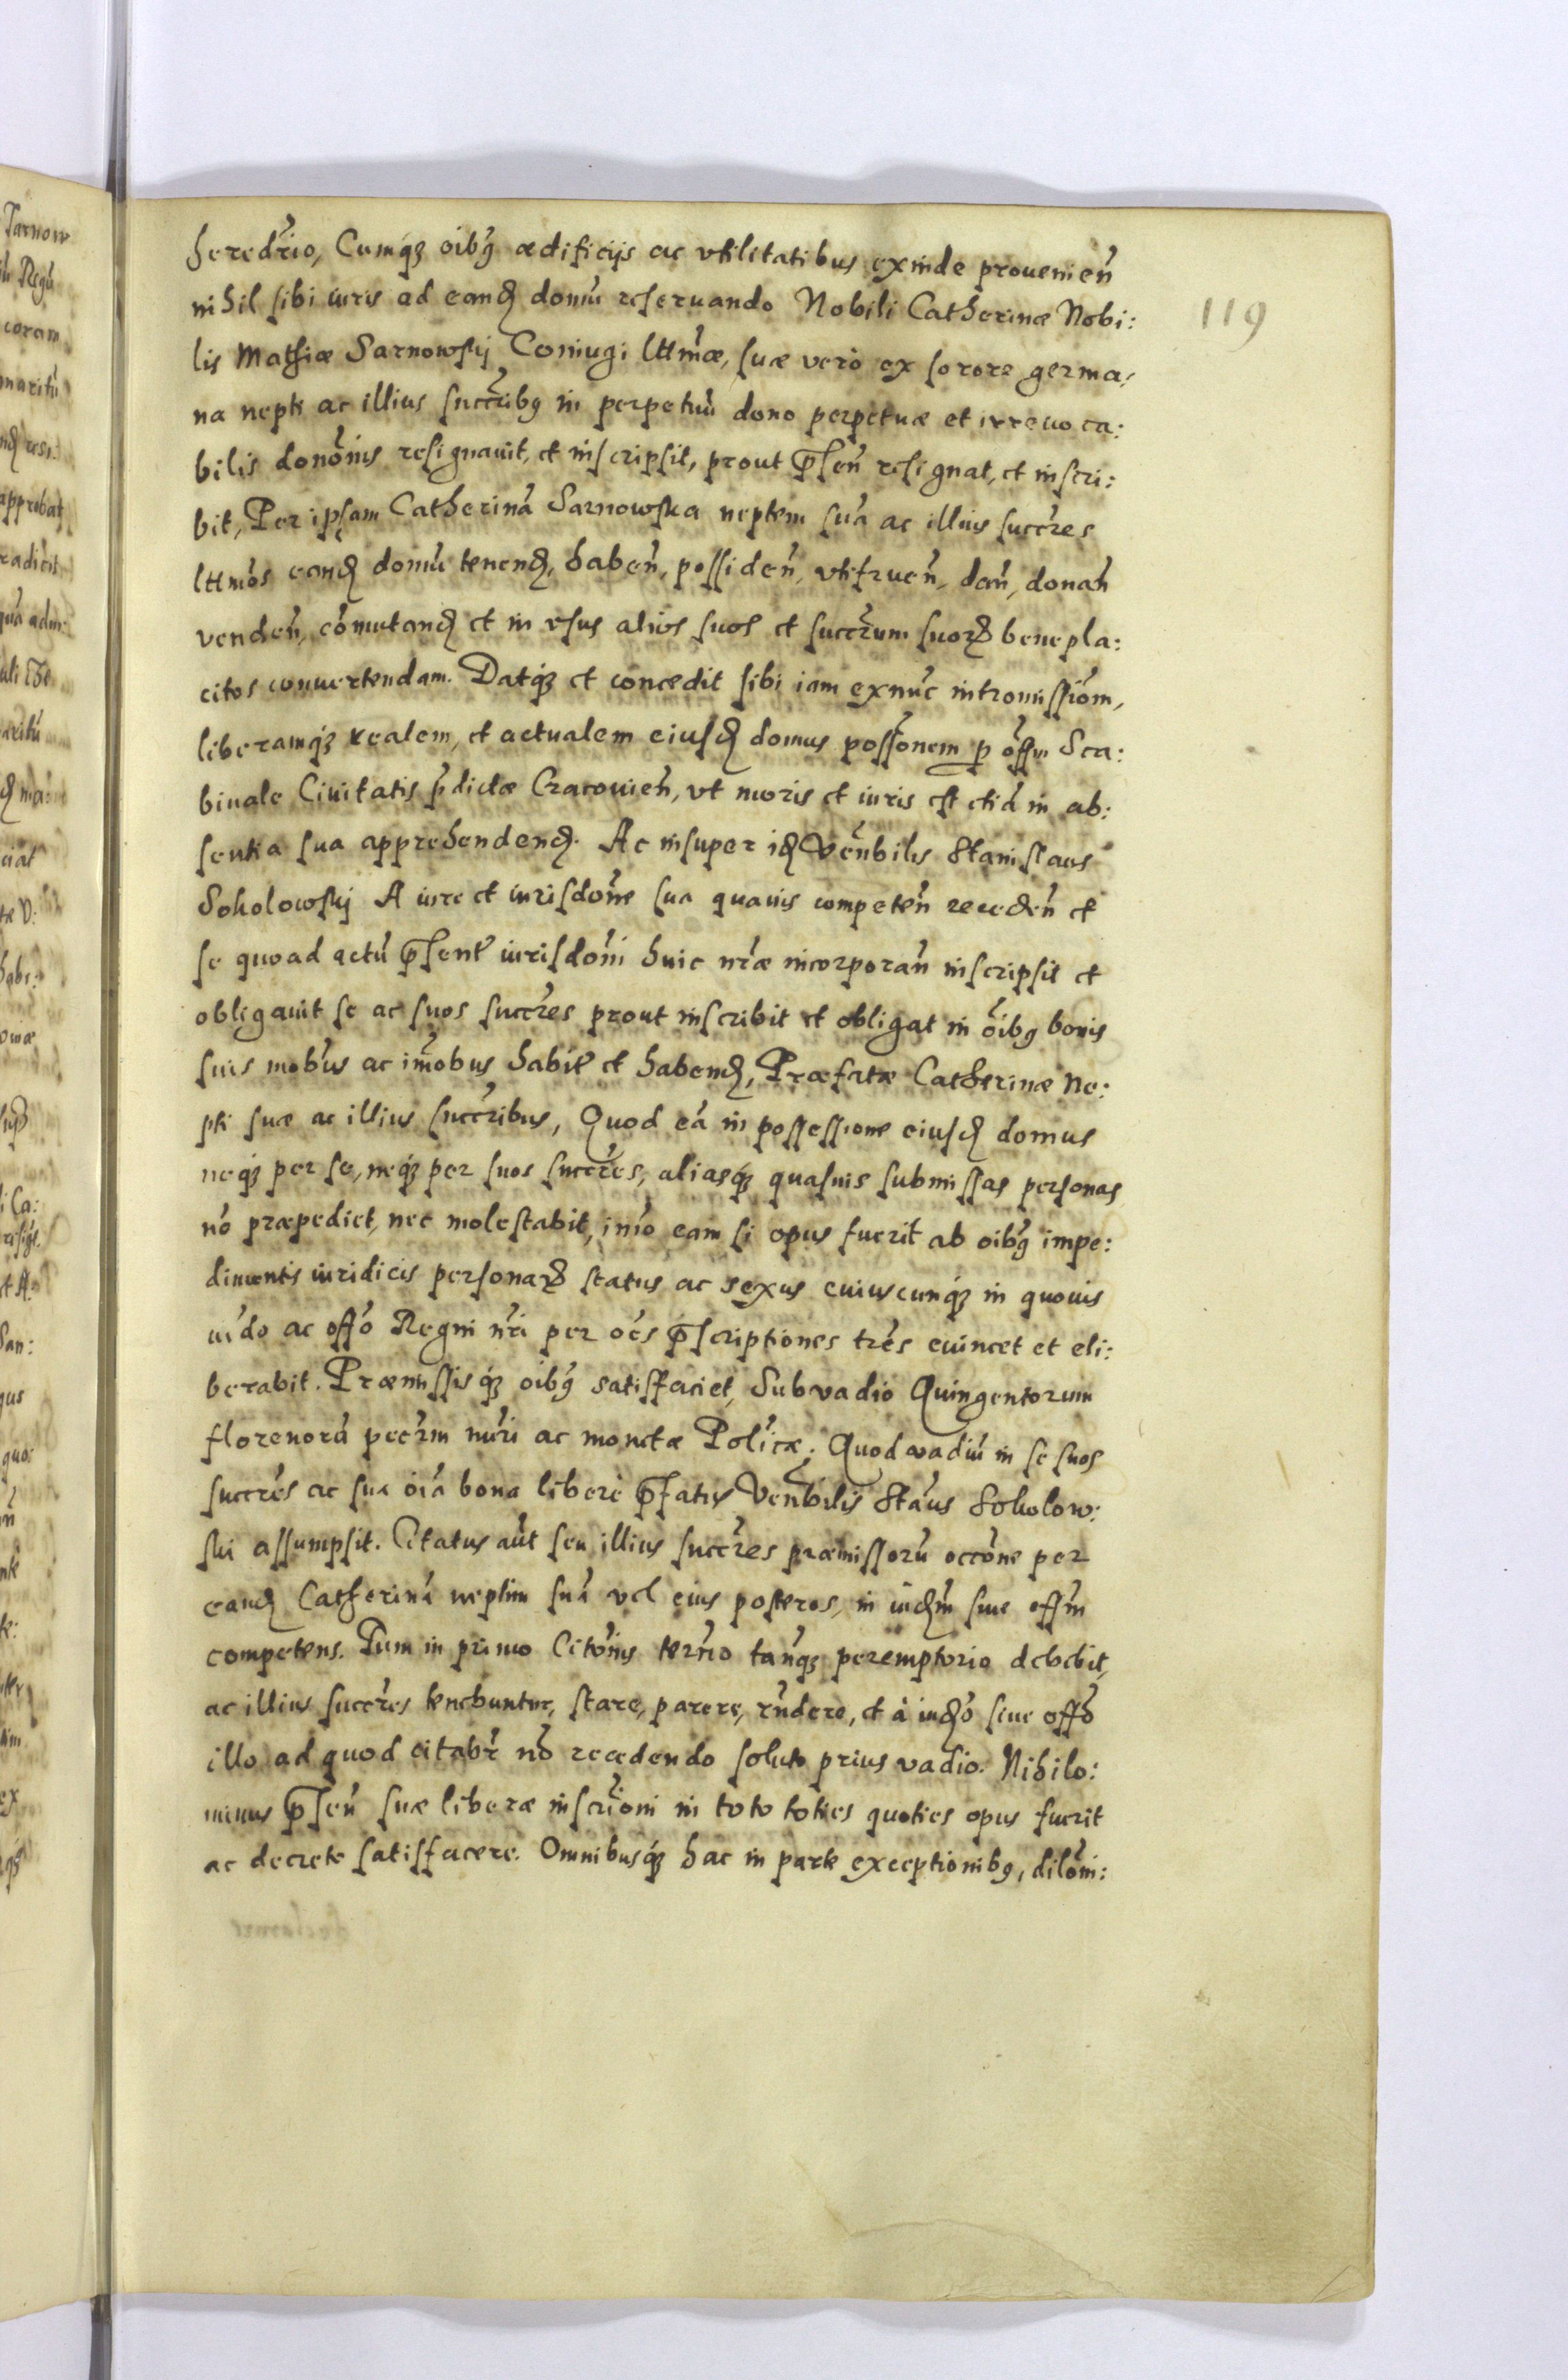 119
heredrio, Cumqz oibg ædificijs ac vtilitatibus exinde prouenien̄
nihil sibi iuris ad eand domū reseruando Nobili Catherinæ Nobi:
lis Mathiæ Sarnowskj Coniugi lttmæ, suæ verò ex sorore germa,
na nepti ac illius succribg in perpetuū dono perpetuæ et irreuoca:
bilis donōnis resignauit, et inscripsit, prout p̄sen̄ resignat, et inscri:
bit, Per ipsam Catherinā Sarnowska neptem suā ac illius succres
lttmos eand domū tenend, haben̄, possiden̄, vtifruen̄, dan̄, donan̄
venden̄, cōmutand et in vsus alios suos et succrum suorꝝ benepla:
citos conuertendam. Datqz et concedit sibi iam exnūc intromissiōm,
liberamqz realem, et actualem eiusd domus possōnem p offm Sca:
binale Ciuitatis p̄dictæ Cracouien̄, vt moris et iuris est etiā in ab:
sentia sua apprehendend. Ac insuper id Venbilis Stanislaus
Sokolowskj A iure et iurisdōne sua quauis competen̄ receden̄ et
se quoad actū p̄sent iurisdōni huic nr̄æ incorporan̄ inscripsit et
obligauit se ac suos succres prout inscribit et obligat in oībg bonis
suis mobus ac im̄obus habit et habend, Præfatæ Catherinæ Ne:
pti suæ ac illius succribus, Quod eā in possessione eiusd domus
neqz per se, neqz per suos succres, aliasqz quasuis submissas personas
nō præpediet, nec molestabit, imò eam si opus fuerit ab oibg impe:
dimentis iuridicis personarꝝ status ac sexus cuiuscunqz in quouis
iud̄o ac offo Regni nr̄i per oēs p̄scriptiones tr̄es euincet et eli:
berabit. Præmissisqz oibg satisfaciet, Sub vadio Quingentorum
florenorū pecrm nūri ac monetæ Polīcæ. Quod vadiū in se suos
succres ac sua oiā bona liberè p̄fatus Venbilis Stāus Sokolow:
ski assumpsit. Citatus aūt seu illius succres præmissorū occōne per
eand Catherinā neptim suā vel eius posteros, in iudm siue offm
competens. Tum in primo Citōnis ternō tanqz peremptorio debebit,
ac illius succres tenebuntur, stare, parere, rn̄dere, et à iudō siue offō
illo ad quod citabr nō recedendo soluto prius vadio. Nihilo:
minus p̄sen̄ suæ liberæ inscriōni in toto toties quoties opus fuerit
ac decrete satisfacere. Omnibusqz hac in parte exceptionibg, dilōni: